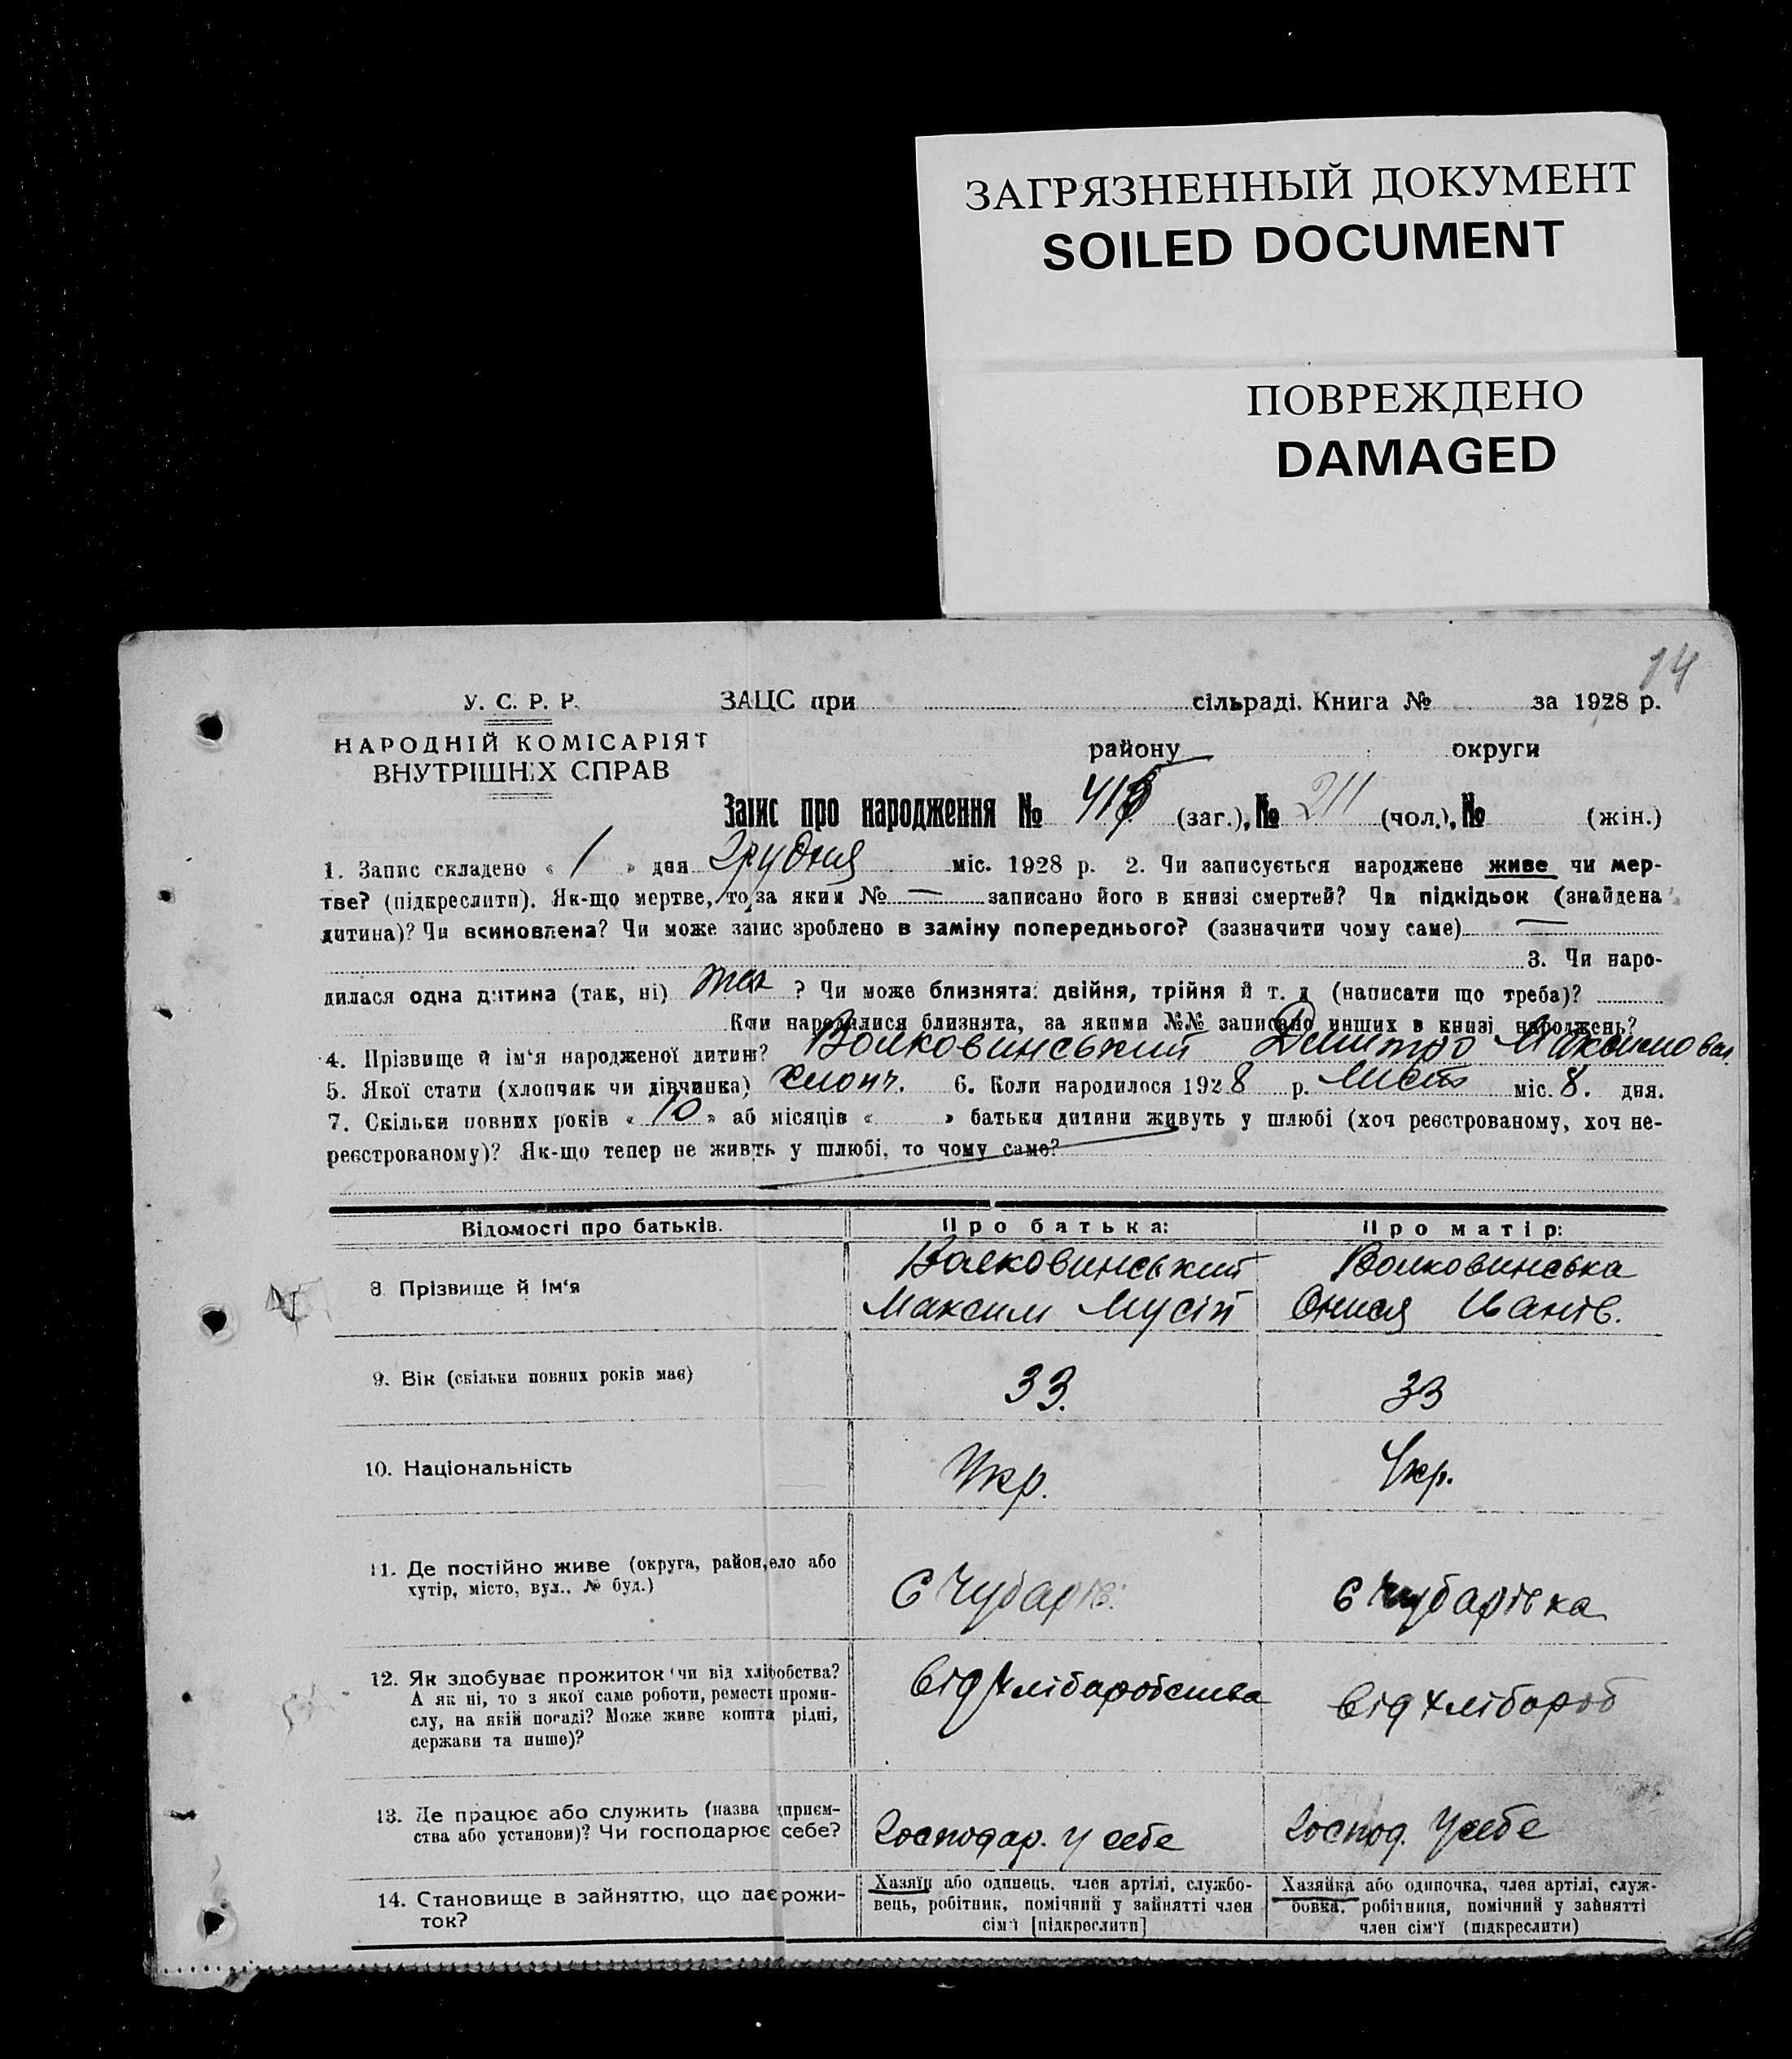 ЗАГРЯЗНЕННЫЙ ДОКУМЕНТ
SOILED DOCUMENT
ПОВРЕЖДЕНО
DAMAGED
14
У. С. Р. Р. ЗАЦС при сільраді. Книга № за 1928 р.
НАРОДНІЙ КОМІСАРІЯТ району округи
ВНУТРІШНІХ СПРАВ
Запис про народження № 415 (заг.), № 211 (чол.), № (жін.)
1. Запис складено « 1 » дня Грудня міс. 1928 р. 2. Чи записується народжене живе чи мер-
тве? (підкреслити). Як-що мертве, то за яким № — записано його в книзі смертей? Чи підкідьок (знайдена
дитина)? Чи всиновлена? Чи може запис зроблено в заміну попереднього? (зазначити чому саме) —
3. Чи наро-
дилася одна дитина (так, ні) так ? Чи може близнята: двійня, трійня й т. д (написати що треба)?
Коли народилися близнята, за якими №№ записано инших в книзі народжень?
4. Прізвище й ім'я народженої дитини? Волковинський Дмитро Максимовал
5. Якої стати (хлопчик чи дівчинка) хлопч. 6. Коли народилося 1928 р. Лист міс. 8. дня.
7. Скільки повних років « 10 » аб місяців « » батьки дитини живуть у шлюбі (хоч реєстрованому, хоч не-
реєстрованому)? Як-що тепер не живть у шлюбі, то чому саме?
Відомості про батьків. Про батька: Про матір:
8 Прізвище й ім'я Волковинський Максим Мусій Волковинська Онися Іванів.
9. Вік (скільки повних років має) 33. 33
10. Національність Укр. Укр.
11. Де постійно живе (округа, район, ело або С Чубарів: С Чубарівка
хутір, місто, вул., № буд.)
12. Як здобуває прожиток чи від хліробства? Від Хліборобства Від Хлібороб
А як ні, то з якої саме роботи, реместі проми-
слу, на якій посаді? Може живе кошта рідні,
держави та инше)?
13. Де працює або служить (назва дприєм- Господар. у себе Господ. у себе
ства або установи)? Чи господарює себе?
14. Становище в зайняттю, що дає рожи- Хазяїн або одинець, член артілі, службо- Хазяйка або одиночка, член артілі, служ-
ток? вець, робітник, помічний у зайнятті член бовка, робітниця, помічний у зайнятті
сім'ї [підкреслити] член сім'ї (підкреслити)